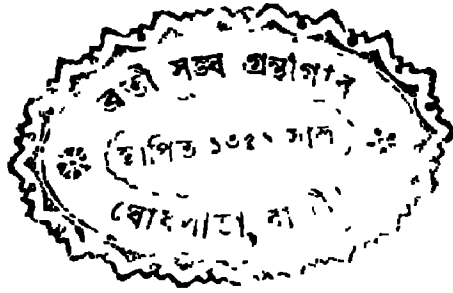 ব্রতী সঙ্ঘ গ্রন্থাগার
স্থাপিত ১৩৪১ সাল
ঘোষপাড়া,